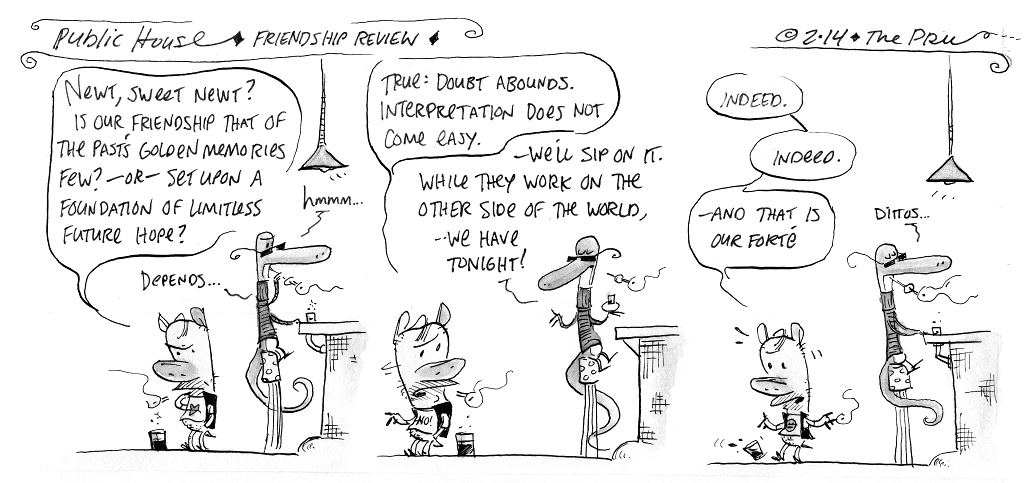 Public House ♦ FRIENDSHIP REVIEW ♦
© 2·14 ♦ The PRU
NEWT, SWEET NEWT?
IS OUR FRIENDSHIP THAT OF
THE PAST'S GOLDEN MEMORIES
FEW? —OR— SET UPON A
FOUNDATION OF LIMITLESS
FUTURE HOPE?
hmmm...
DEPENDS...
TRUE: DOUBT ABOUNDS.
INTERPRETATION DOES NOT
COME EASY.
—WE'LL SIP ON IT.
WHILE THEY WORK ON THE
OTHER SIDE OF THE WORLD,
--WE HAVE
TONIGHT!
NO!
INDEED.
INDEED.
—AND THAT IS
OUR FORTÉ
DITTOS...